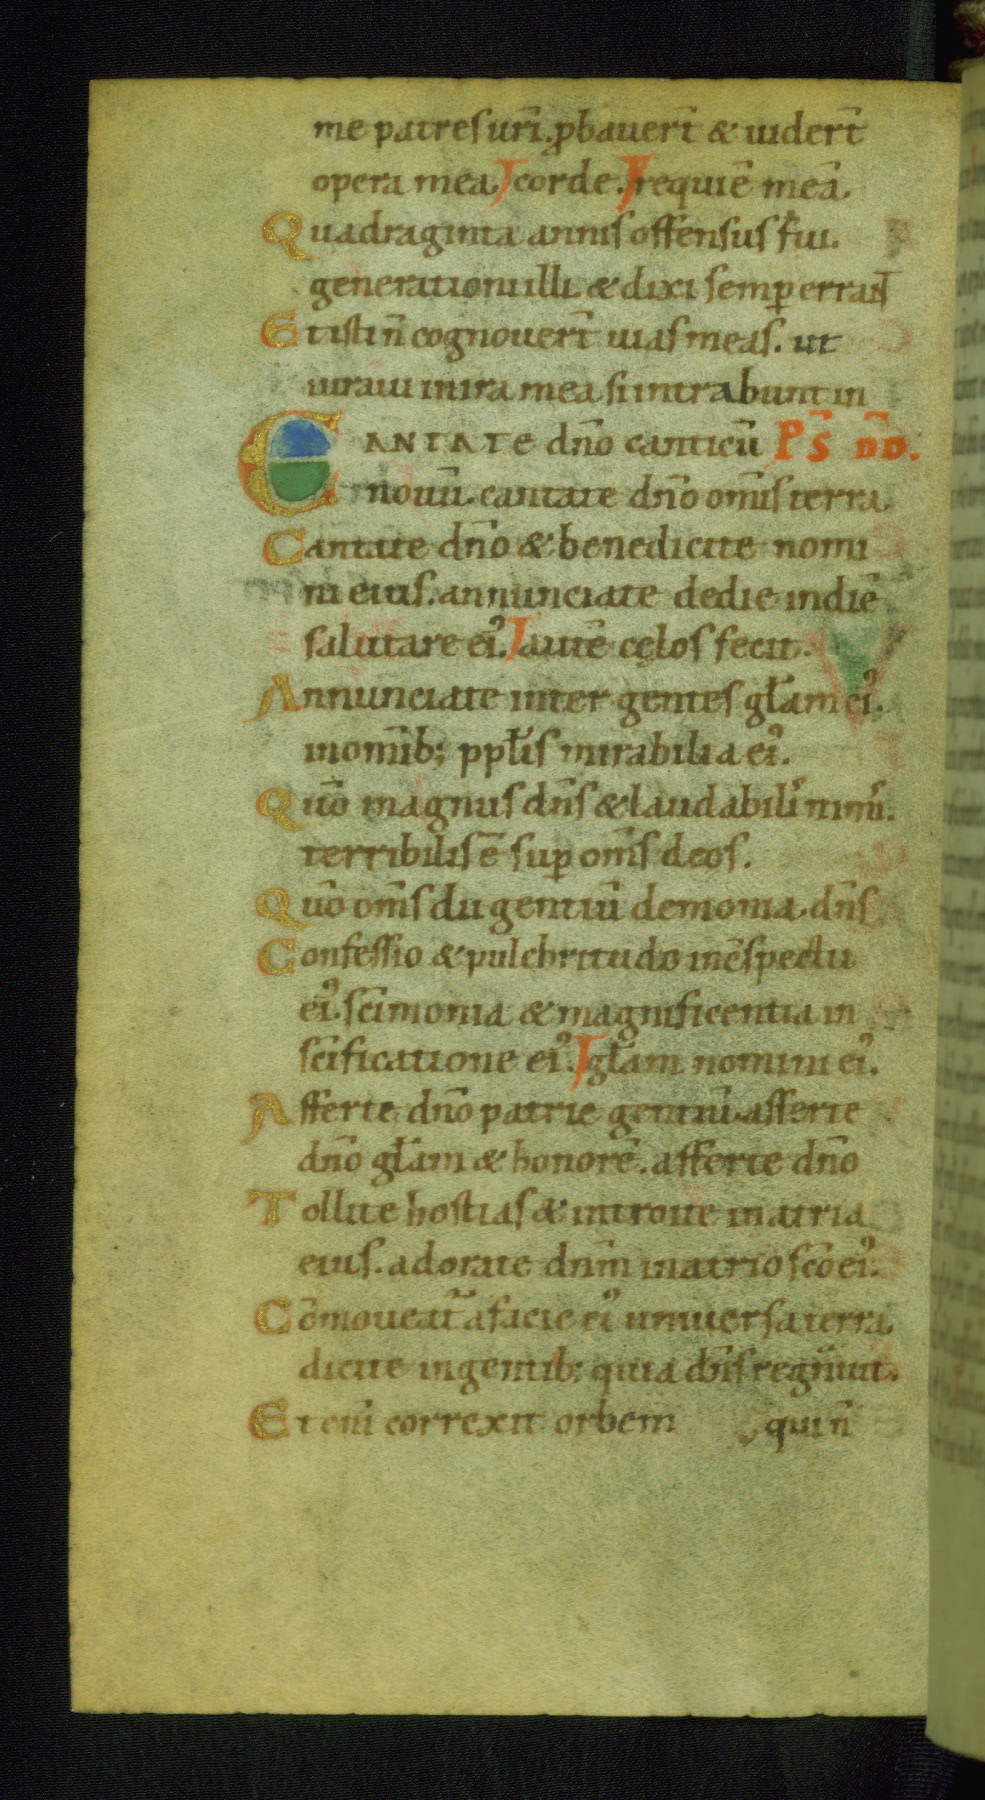 me patres ur̄i. ꝓbauer̄t & uider̄t
opera mea. corde. requiē meā.
Quadraginta annis offensus fui.
generationi illi & dixi semꝑ errant
Et isti n̄ cognouer̄t uias meas. ut
iuraui in ira mea si intrabunt in
CANTATE dn̄o canticū Ps̄ DD̄.
nouū. cantate dn̄o om̄is terra.
Cantate dn̄o & benedicite nomi
ni eius. annunciate de die in diē
salutare ei᾽. autē cęlos fecit.
Annunciate inter gentes gl̄am ei᾽.
in om̄ib; ppl̄is mirabilia ei᾽.
Qūo magnus dn̄s & laudabilis nimis.
terribilis ē suꝑ om̄s deos.
Qūo om̄s dii gentiū demonia. dn̄s
Confessio & pulchritudo in c̄spectu
ei᾽. sc̄imonia & magnificentia in
sc̄ificatione ei᾽. gl̄am nomini ei᾽.
Afferte dn̄o patrie gentiū. afferte
dn̄o gl̄am & honorē. afferte dn̄o
Tollite hostias & introite in atria
eius. adorate dn̄m in atrio sc̄o ei᾽.
Cōmoueat᷑ a facie ei᾽ uniuersa terra.
dicite in gentib; quia dn̄s regnauit.
Eteni᷑ correxit orbem qui n̄